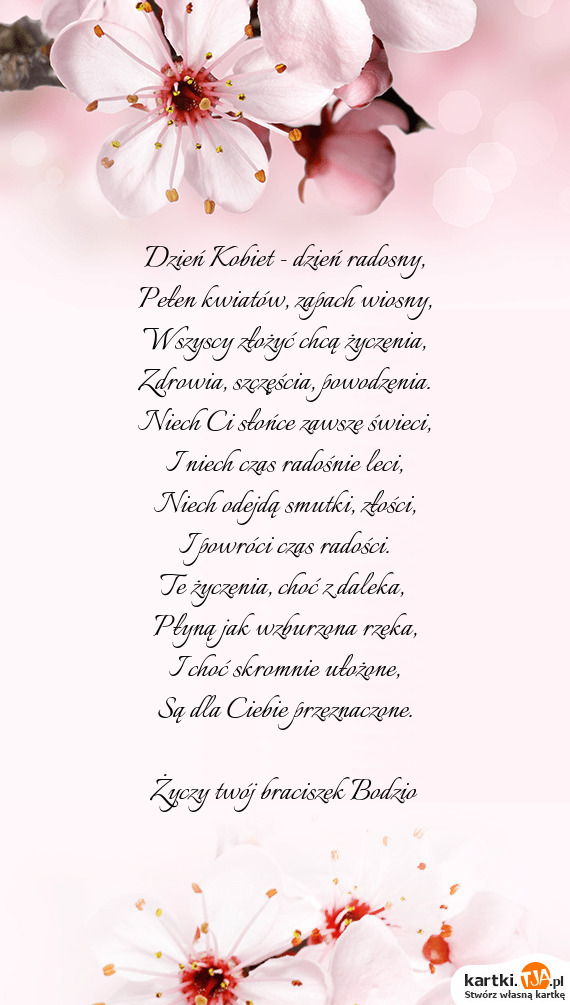 Dzień Kobiet - dzień radosny,
Pełen kwiatów, zapach wiosny,
Wszyscy złożyć chcą życzenia,
Zdrowia, szczęścia, powodzenia.
Niech Ci słońce zawsze świeci,
I niech czas radośnie leci,
Niech odejdą smutki, złości,
I powróci czas radości.
Te życzenia, choć z daleka,
Płyną jak wzburzona rzeka,
I choć skromnie ułożone,
Są dla Ciebie przeznaczone.
Życzy twój braciszek Bodzio
kartki.TJA.pl
Stwórz własną kartkę